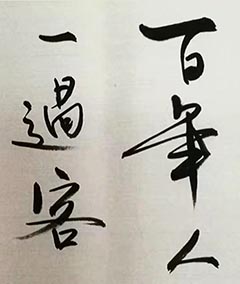 百年人
一過客